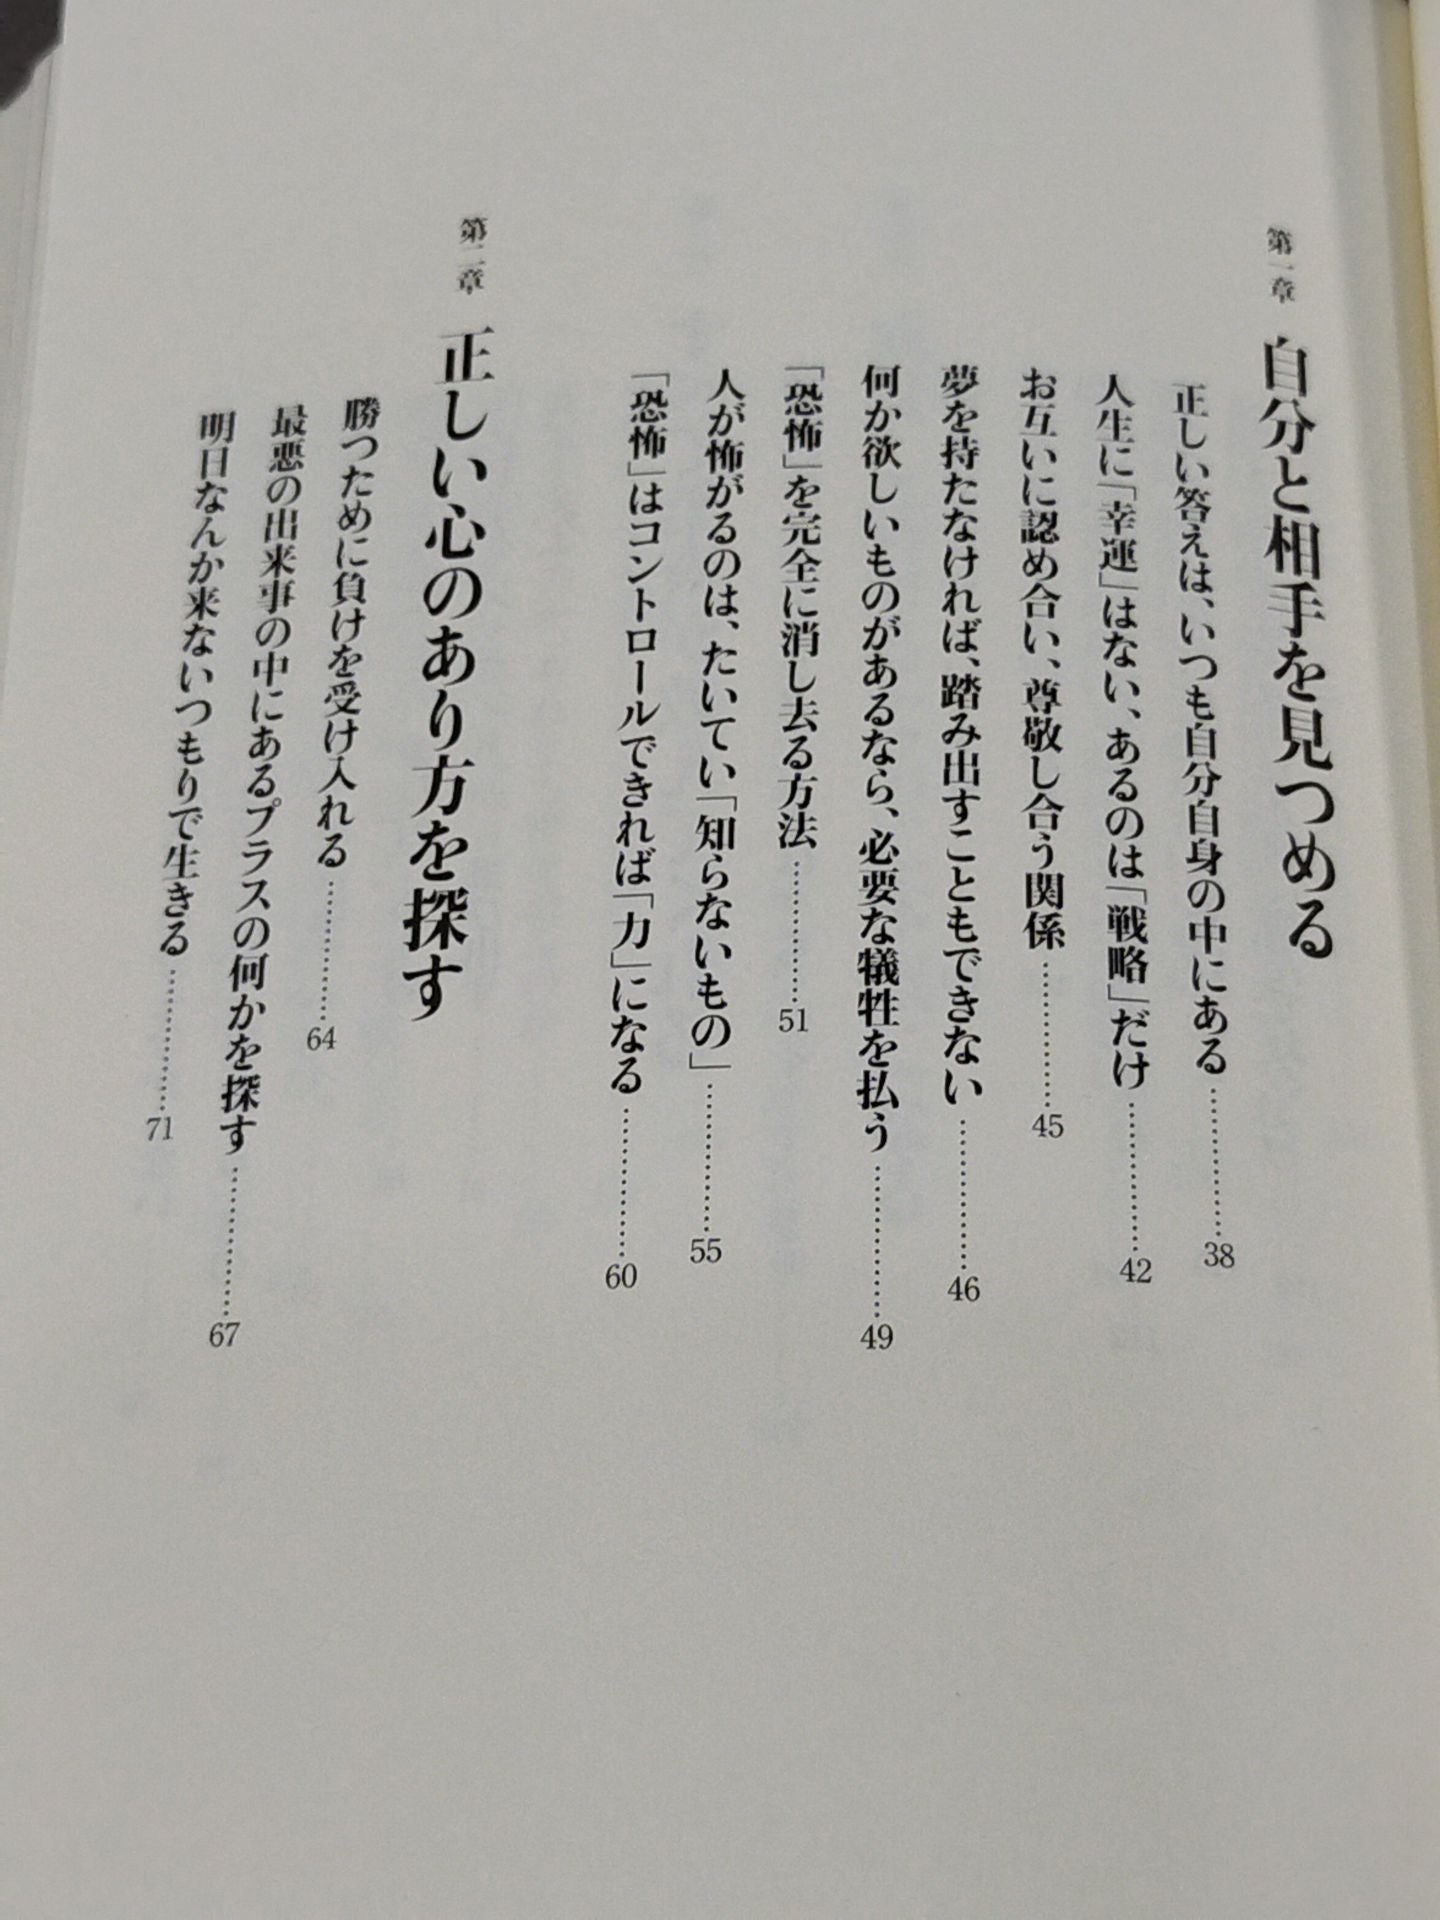 第一章 自分と相手を見つめる
正しい答えは、いつも自分自身の中にある…………38
人生に「幸運」はない、あるのは「戦略」だけ…………42
お互いに認め合い、尊敬し合う関係…………45
夢を持たなければ、踏み出すこともできない…………46
何か欲しいものがあるなら、必要な犠牲を払う…………49
「恐怖」を完全に消し去る方法…………51
人が怖がるのは、たいてい「知らないもの」…………55
「恐怖」はコントロールできれば「力」になる…………60
第二章 正しい心のあり方を探す
勝つために負けを受け入れる…………64
最悪の出来事の中にあるプラスの何かを探す…………67
明日なんか来ないつもりで生きる…………71